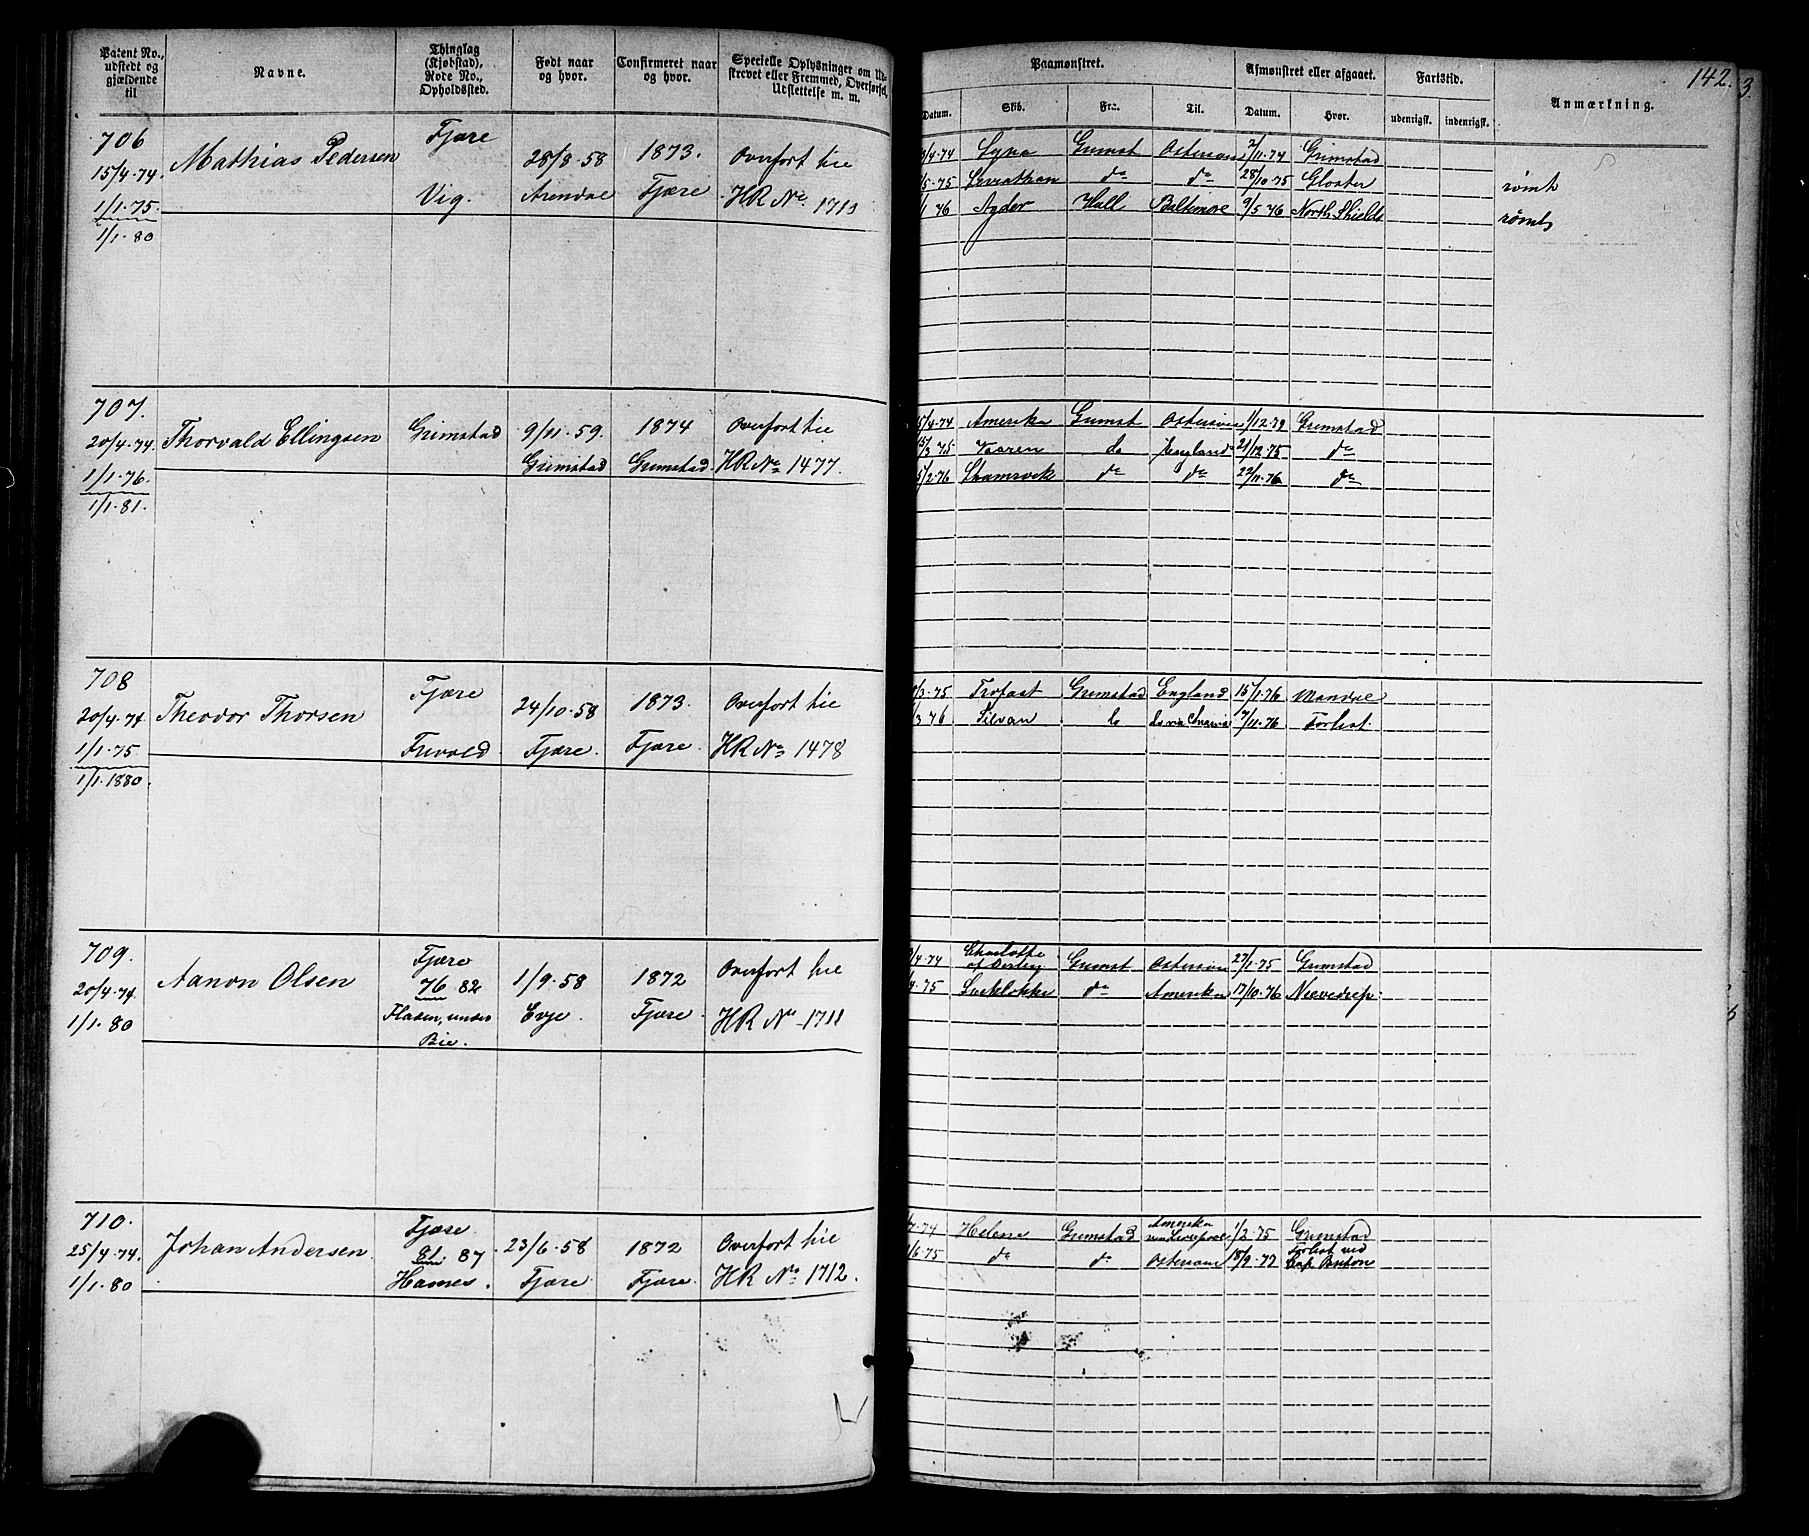 Patent No., udstedt og gjældende til
Navne.
Thinglag (Kjøbstad), Rode No., Opholdssted.
Født naar og hvor.
Confirmeret naar og hvor.
Specielle Oplysninger om Udskrevet eller Fremmed, Overførsel, Udslettelse m. m.
Paamønstret.
Datum. Skib. Fra Til.
Afmønstret eller afgaaet.
Datum. Hvor.
Fartstid.
udenrigsk. indenrigsk.
Anmærkning.
142.
3.
706 Fjære
15/4.74. Mathias Pedersen 28/8.58 1873. Overført hie
1/1.75. Vig. Arendal Fjære HR No. 1713
1/1.80
4.74 Grimst Østersøen /11.74 Grimstad
/5.75 Leviathan do do 28/10.75 Gloster rømt
/1 76 Agder Hull Baltimore 9/5.76 North Shields rømt
707.
20/4.74 Thorvald Ellingsen Grimstad 9/11.59. 1874 Overført hie
1/1.76. Grimstad Grimstad. HR No 1477.
1/1.81.
/4.74 Amerika Grimst Østersøen Grimstad
/3.75 Vaaren do England 21/12.75 do
/2.76 Shamrock do do 22/11.76 do
708 Fjære
20/4.74 Theodor Thorsen 24/10.58 1873. Overført hie
1/1.75 Frivold Fjære. Fjære. HR No 1478
1/1.1880.
/3.75 Trofast Grimstad England 15/1.76 Mandal
/3 76 Silvan do 7/11.76 Forlist.
709. Fjære
20/4.74 Aanon Olsen 76 82 1/9.58 1872 Overført hie
1/1.80 Fladen, under Bie. Evje. Fjære. HR No 1711
/4.74 Charlotte af Grimst Østersøen 27/1.75 Grimstad
/4.75 do Amerika 17/10.76
710. Fjære.
25/4.74. Johan Andersen 81. 87 23/6.58 1872 Overført hie
1/1.80 Hames. Fjære. Fjære. HR No 1712.
.74 Helene Grimstad Amerika 1/2.75 Grimstad
/6.75 do do Østersøen Forlist ved
Cap